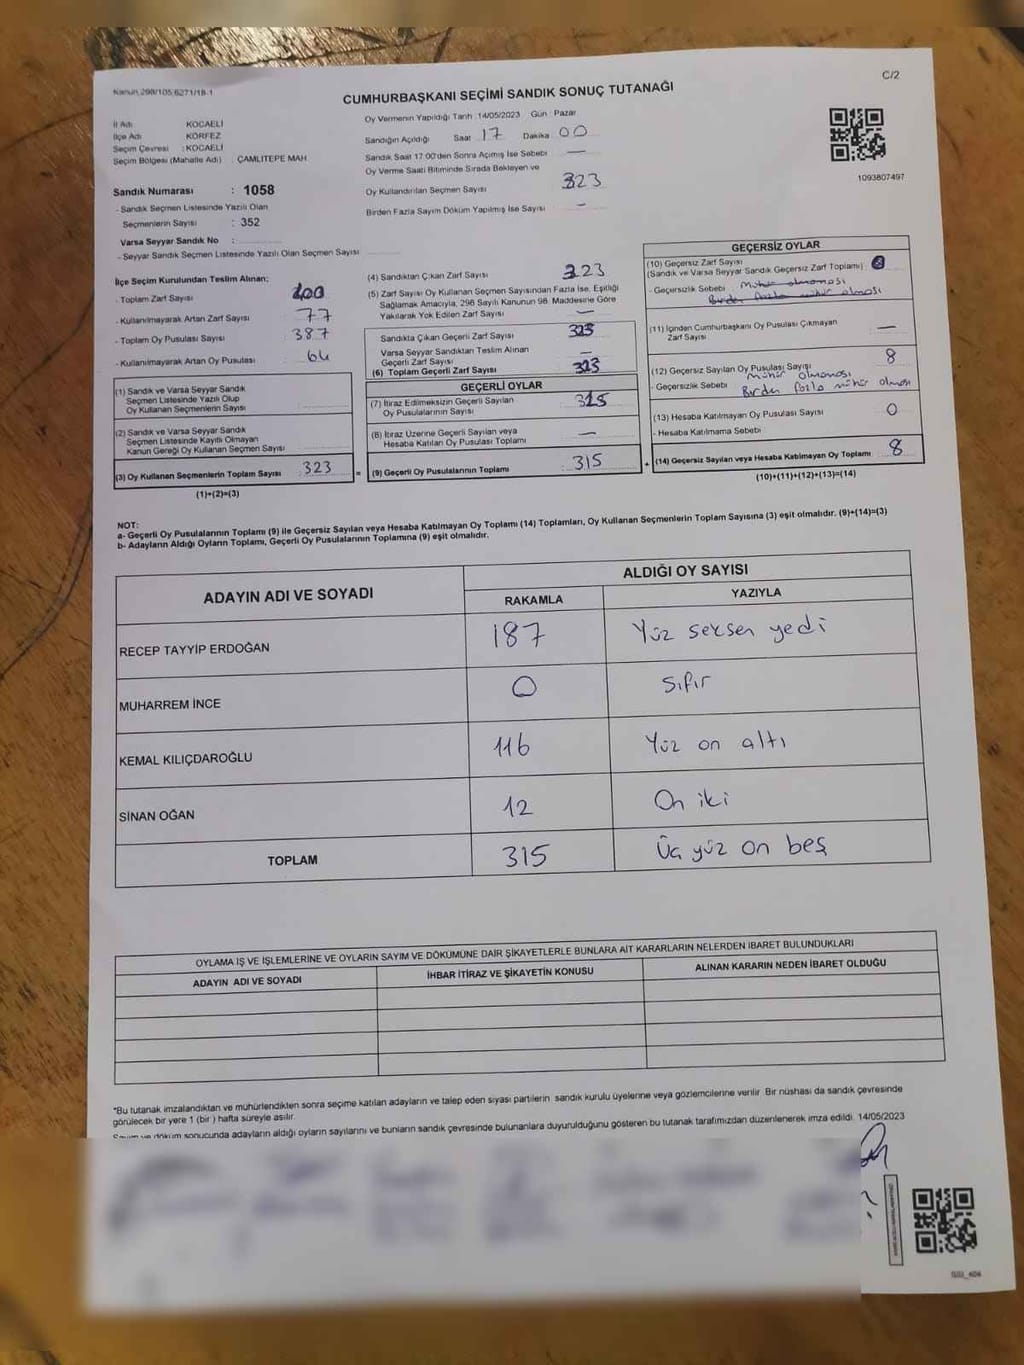 Kanun 298/105 6271/18-1
C/2
CUMHURBAŞKANI SEÇİMİ SANDIK SONUÇ TUTANAĞI
İl Adı : KOCAELİ
İlçe Adı : KÖRFEZ
Seçim Çevresi : KOCAELİ
Seçim Bölgesi (Mahalle Adı) : ÇAMLITEPE MAH
Sandık Numarası : 1058
- Sandık Seçmen Listesinde Yazılı Olan
Seçmenlerin Sayısı : 352
Varsa Seyyar Sandık No :
- Seyyar Sandık Seçmen Listesinde Yazılı Olan Seçmen Sayısı
Oy Vermenin Yapıldığı Tarih :14/05/2023 Gün Pazar
Sandığın Açıldığı Saat 17 Dakika 00
Sandık Saat 17:00'den Sonra Açılmış İse Sebebi —
Oy Verme Saati Bitiminde Sırada Bekleyen ve
Oy Kullandırılan Seçmen Sayısı 323
Birden Fazla Sayım Döküm Yapılmış İse Sayısı —
1093807497
İlçe Seçim Kurulundan Teslim Alınan;
- Toplam Zarf Sayısı 400
- Kullanılmayarak Artan Zarf Sayısı 77
- Toplam Oy Pusulası Sayısı 387
- Kullanılmayarak Artan Oy Pusulası 64
(1) Sandık ve Varsa Seyyar Sandık
Seçmen Listesinde Yazılı Olup
Oy Kullanan Seçmenlerin Sayısı
(2) Sandık ve Varsa Seyyar Sandık
Seçmen Listesinde Kayıtlı Olmayan
Kanun Gereği Oy Kullanan Seçmen Sayısı
(3) Oy Kullanan Seçmenlerin Toplam Sayısı 323
(1)+(2)=(3)
(4) Sandıktan Çıkan Zarf Sayısı 323
(5) Zarf Sayısı Oy Kullanan Seçmen Sayısından Fazla İse, Eşitliği
Sağlamak Amacıyla, 298 Sayılı Kanunun 98. Maddesine Göre
Yakılarak Yok Edilen Zarf Sayısı —
Sandıkta Çıkan Geçerli Zarf Sayısı 323
Varsa Seyyar Sandıktan Teslim Alınan
Geçerli Zarf Sayısı —
(6) Toplam Geçerli Zarf Sayısı 323
GEÇERLİ OYLAR
(7) İtiraz Edilmeksizin Geçerli Sayılan
Oy Pusulalarının Sayısı 315
(8) İtiraz Üzerine Geçerli Sayılan veya
Hesaba Katılan Oy Pusulası Toplamı —
(9) Geçerli Oy Pusulalarının Toplamı 315
GEÇERSİZ OYLAR
(10) Geçersiz Zarf Sayısı
(Sandık ve Varsa Seyyar Sandık Geçersiz Zarf Toplamı)
- Geçersizlik Sebebi Mühür olmaması
Birden fazla mühür olması
(11) İçinden Cumhurbaşkanı Oy Pusulası Çıkmayan
Zarf Sayısı —
(12) Geçersiz Sayılan Oy Pusulası Sayısı 8
- Geçersizlik Sebebi Mühür olmaması
Birden fazla mühür olması
(13) Hesaba Katılmayan Oy Pusulası Sayısı 0
- Hesaba Katılmama Sebebi
(14) Geçersiz Sayılan veya Hesaba Katılmayan Oy Toplamı 8
(10)+(11)+(12)+(13)=(14)
NOT:
a- Geçerli Oy Pusulalarının Toplamı (9) ile Geçersiz Sayılan veya Hesaba Katılmayan Oy Toplamı (14) Toplamları, Oy Kullanan Seçmenlerin Toplam Sayısına (3) eşit olmalıdır. (9)+(14)=(3)
b- Adayların Aldığı Oyların Toplamı, Geçerli Oy Pusulalarının Toplamına (9) eşit olmalıdır.
ADAYIN ADI VE SOYADI
ALDIĞI OY SAYISI
RAKAMLA
YAZIYLA
RECEP TAYYİP ERDOĞAN 187 Yüz seksen yedi
MUHARREM İNCE 0 Sıfır
KEMAL KILIÇDAROĞLU 116 Yüz on altı
SİNAN OĞAN 12 On iki
TOPLAM 315 Üç yüz on beş
OYLAMA İŞ VE İŞLEMLERİNE VE OYLARIN SAYIM VE DÖKÜMÜNE DAİR ŞİKAYETLERLE BUNLARA AİT KARARLARIN NELERDEN İBARET BULUNDUKLARI
ADAYIN ADI VE SOYADI
İHBAR İTİRAZ VE ŞİKAYETİN KONUSU
ALINAN KARARIN NEDEN İBARET OLDUĞU
*Bu tutanak imzalandıktan ve mühürlendikten sonra seçime katılan adayların ve talep eden siyasi partilerin sandık kurulu üyelerine veya gözlemcilerine verilir. Bir nüshası da sandık çevresinde
görülecek bir yere 1 (bir ) hafta süreyle asılır.
Sayım ve döküm sonucunda adayların aldığı oyların sayılarını ve bunların sandık çevresinde bulunanlara duyurulduğunu gösteren bu tutanak tarafımızdan düzenlenerek imza edildi. 14/05/2023